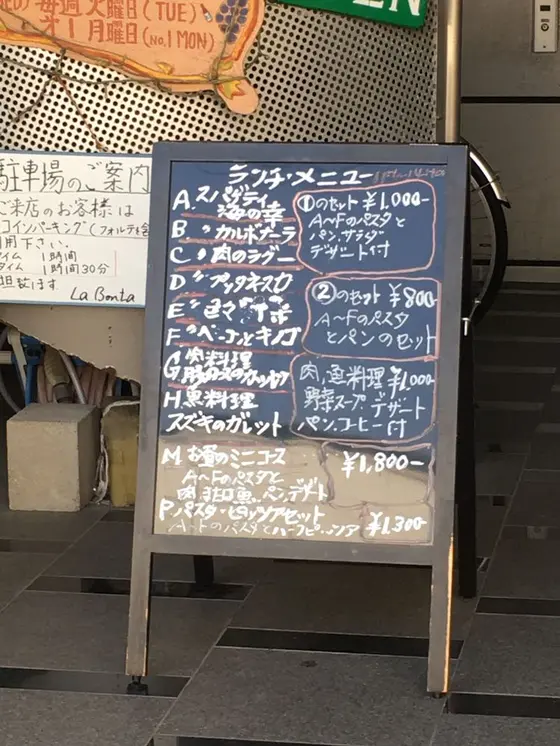 毎週火曜日(TUE)
1月曜日(No.1 MON)
EN
駐車場のご案内
ご来店のお客様は
コインパーキング(フォルテ
用下さい。
タイム 1時間
タイム 1時間30分
致します。
La Bonta
ランチ・メニュー
A. スパゲティ
海の幸
B. 〃 カルボナーラ
C 〃 肉のラグー
D 〃 プッタネスカ
E 〃 色々
F 〃 ベーコンとキノコ
G 肉料理
H 魚料理
スズキのガレット
①のセット ¥1,000-
A〜Fのパスタと
パン、サラダ
デザート付
②のセット ¥800-
A〜Fのパスタ
とパンのセット
肉、魚料理 ¥1,000-
野菜スープ、デザート
パン、コーヒー付
M お昼のミニコース
¥1,800-
A〜Fのパスタと
肉 魚、パン、デザート
P パスタ・ピッツアセット
A〜Fのパスタとハーフピッツア ¥1,300-